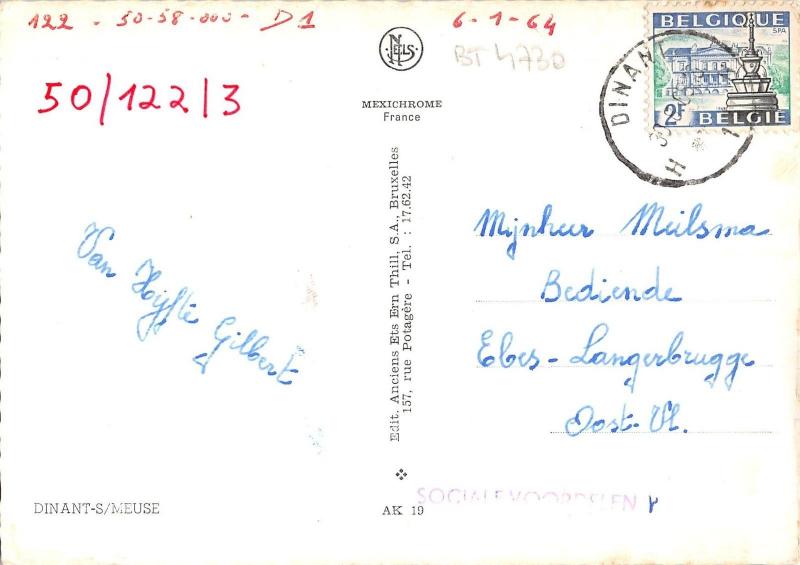 122 - 50-58-000- D1
6-1-64
BT 4730
50/122/3
NELS
MEXICHROME
France
BELGIQUE
SPA
2F
BELGIË
DINANT
1
H
Mijnheer Meilsma
Bediende
Ebes-Langerbrugge
Oost-Vl.
Van Hyfte Gilbert
Edit. Anciens Ets Ern Thill, S.A., Bruxelles
157, rue Potagère - Tel. : 17.62.42
SOCIALE VOORDELEN
DINANT-S/MEUSE
AK 19